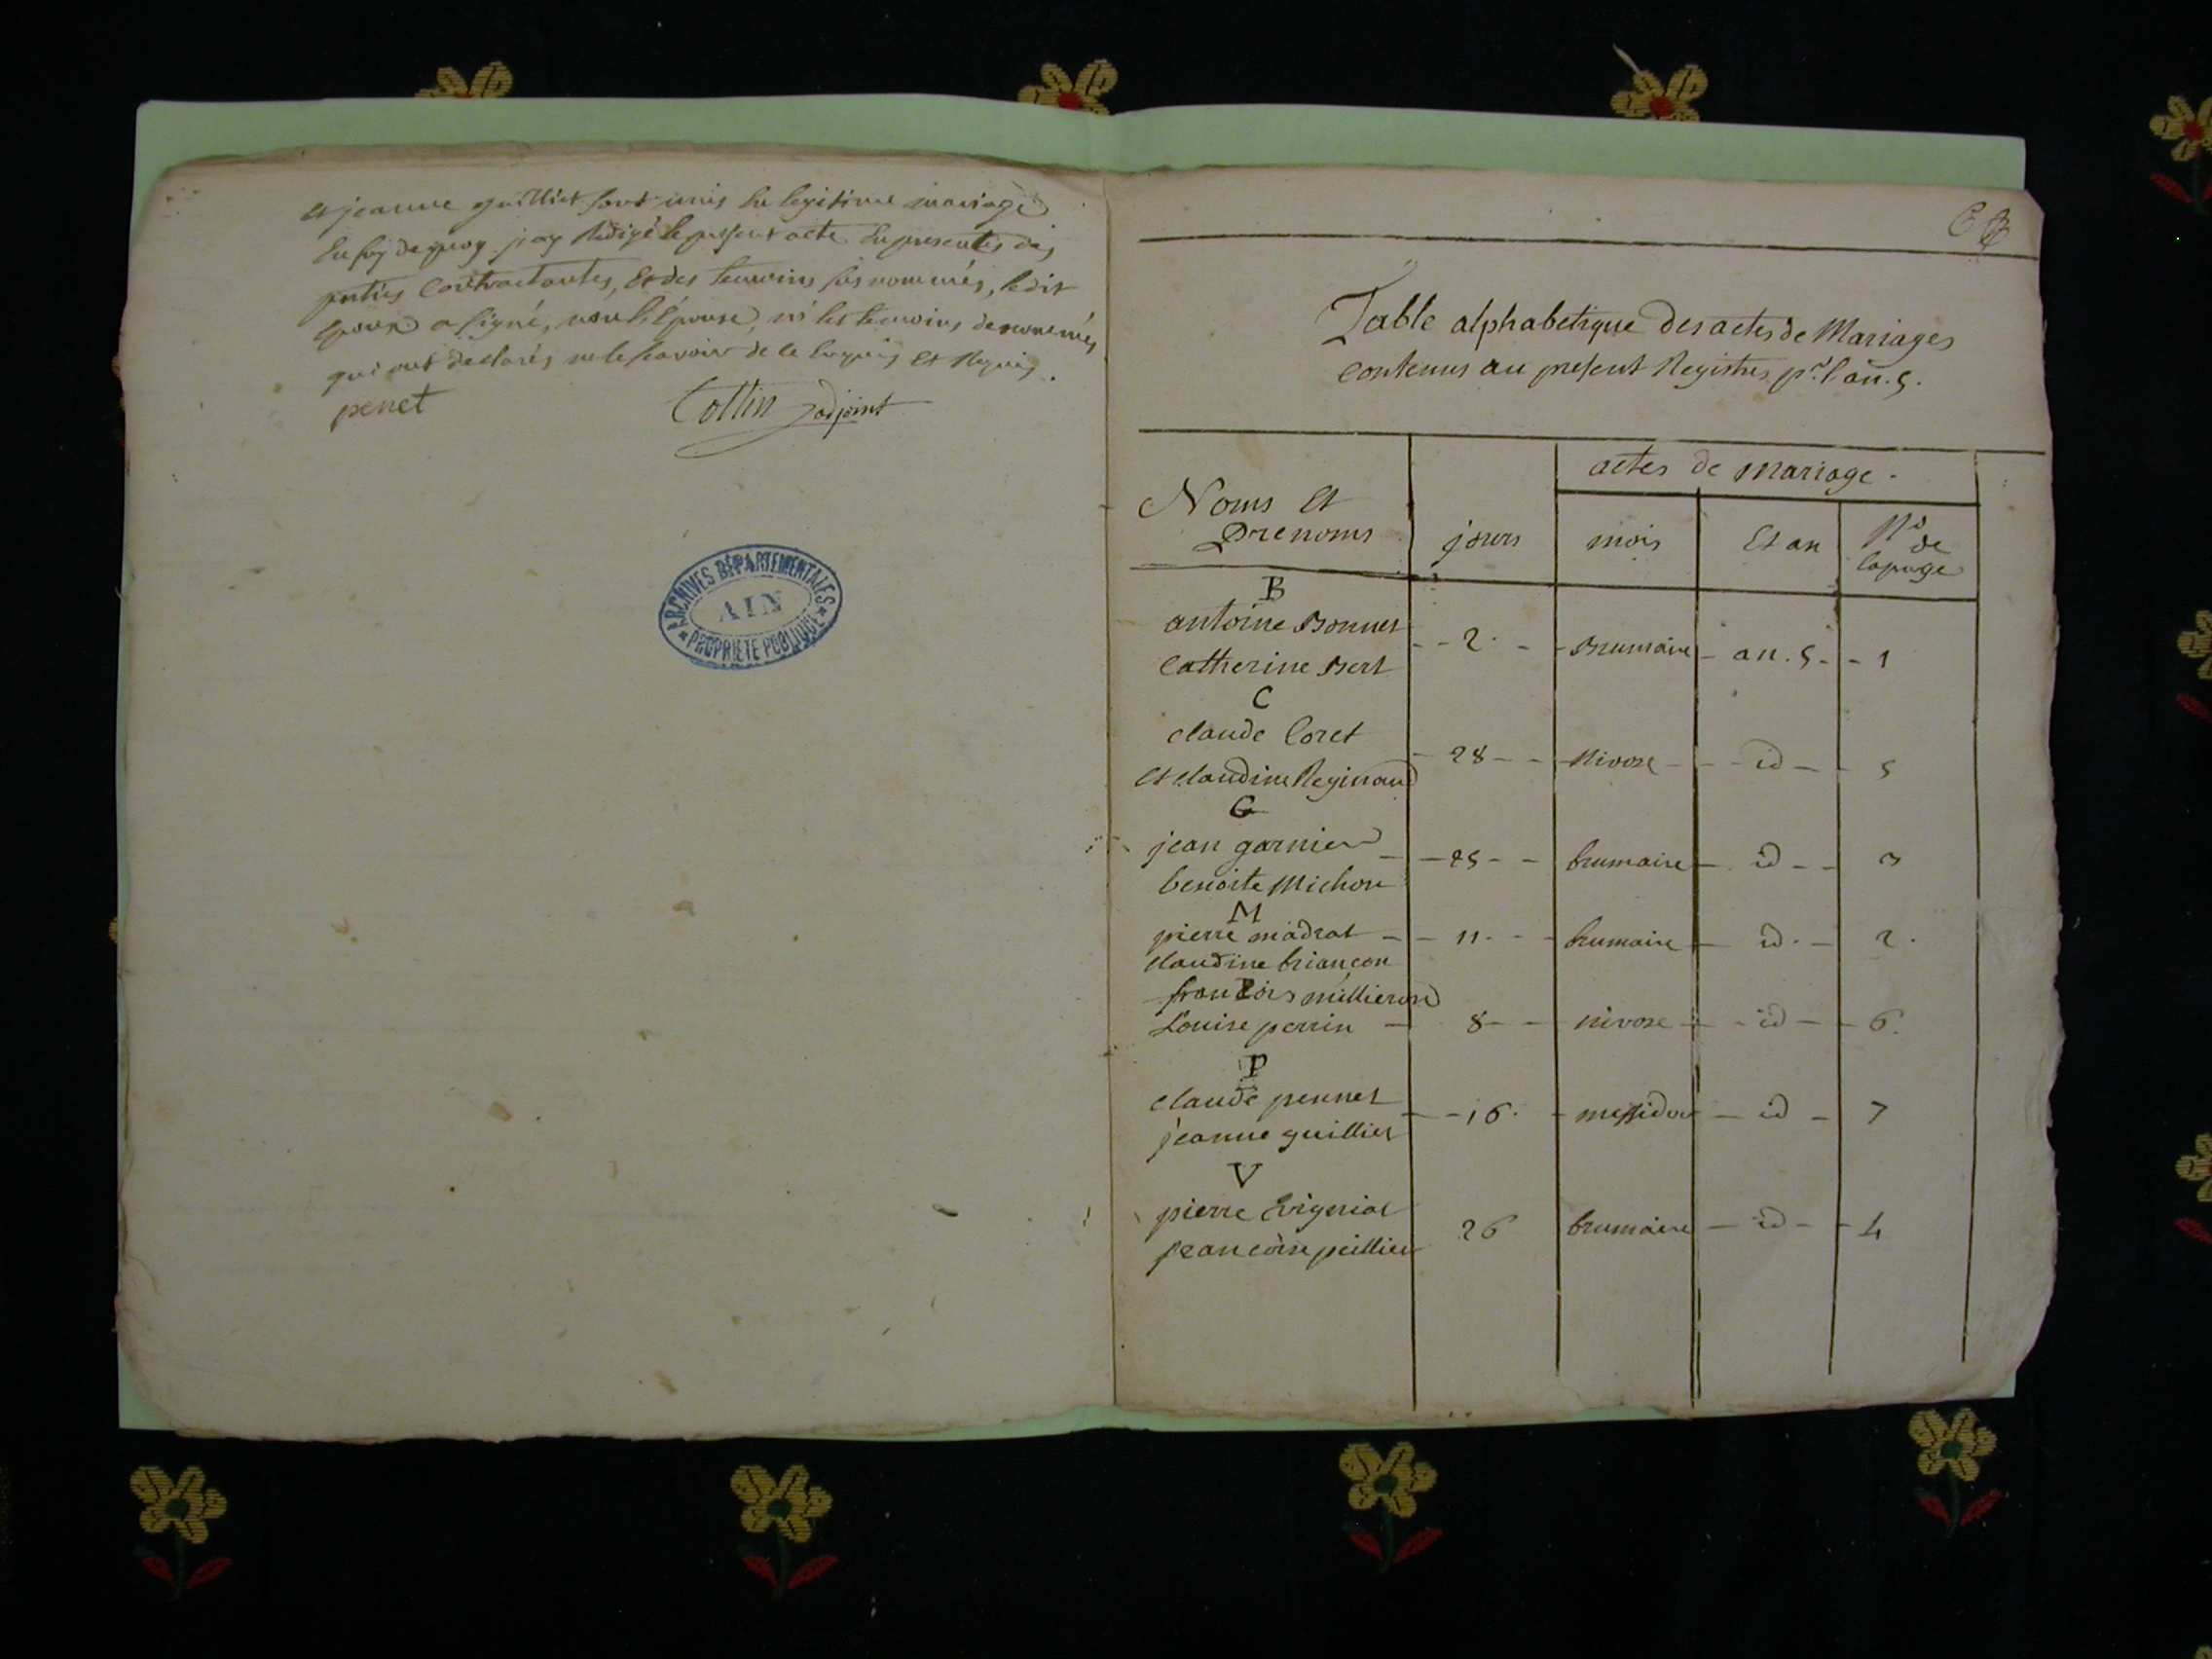 et jeanne guilliet sont unis en legitime mariage
En foy de quoy j'ay Redigé le present acte En presentes des
parties Contractantes, Et des temoins sus nommés, ledit
Epoux a signé, non l'Epouse, ni les temoins denommés
qui ont declarés ne le savoir de ce Enquis Et Requis.
penet
Collin adjoint
ARCHIVES DÉPARTEMENTALES
AIN
PROPRIÉTÉ PUBLIQUE
Table alphabetique des actes de Mariages
contenus au present Registres pr. l'an. 5.
actes de mariage.
Noms Et Prenoms
jours
mois
Et an
No de la page
B
antoine Bonnet
Catherine Bert
2 Brumaire an. 5 1
C
claude Coret
et claudine Reginaud
28 Nivose id 5
G
jean garnier
benoite Michon
25 brumaire id 3
M
pierre madrat
claudine briançon
11 brumaire id 2.
francois millieron
Louise perrin
8 nivose id 6.
P
claude pennet
jeanne guilliet
16 messidor id 7
V
pierre Vigniat
francoise peillier
26 brumaire id 4